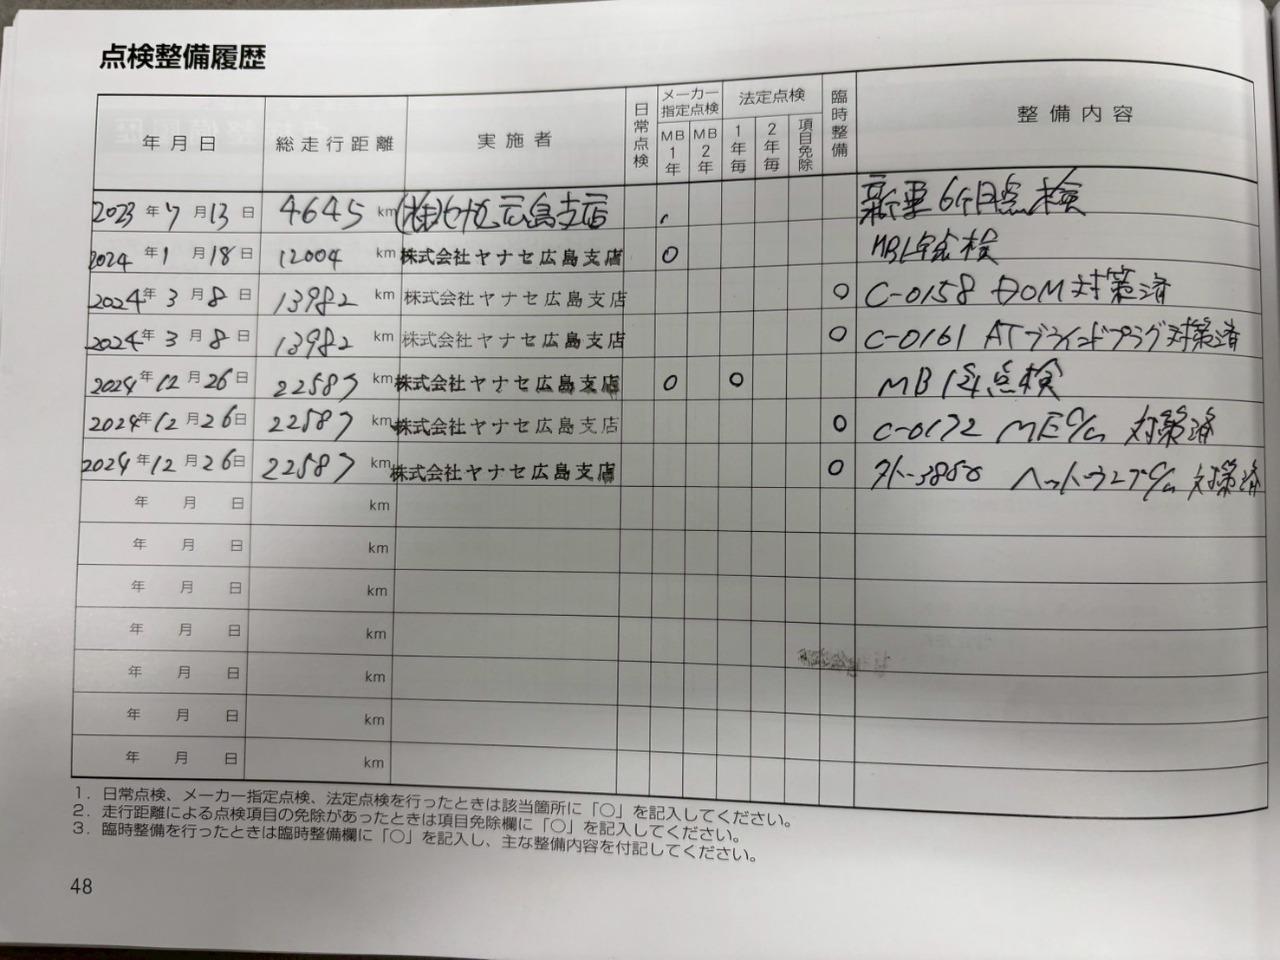 点検整備履歴
年月日 総走行距離 実施者 日常点検 メーカー指定点検 MB1年 MB2年 法定点検 1年毎 2年毎 項目免除 臨時整備 整備内容
2023年7月13日 4645km (株)ヤナセ広島支店 新車6ヶ月点検
2024年1月18日 12004km 株式会社ヤナセ広島支店 ○ MB1年点検
2024年3月8日 13982km 株式会社ヤナセ広島支店 ○ C-0158 対策済
2024年3月8日 13982km 株式会社ヤナセ広島支店 ○ C-0161 ATブラインドプラグ対策済
2024年12月26日 22587km 株式会社ヤナセ広島支店 ○ ○ MB1年点検
2024年12月26日 22587km 株式会社ヤナセ広島支店 ○ C-0172 ME 対策済
2024年12月26日 22587km 株式会社ヤナセ広島支店 ○ 対策済
年 月 日 km
年 月 日 km
年 月 日 km
年 月 日 km
年 月 日 km
年 月 日 km
年 月 日 km
1. 日常点検、メーカー指定点検、法定点検を行ったときは該当箇所に「○」を記入してください。
2. 走行距離による点検項目の免除があったときは項目免除欄に「○」を記入してください。
3. 臨時整備を行ったときは臨時整備欄に「○」を記入し、主な整備内容を付記してください。
48